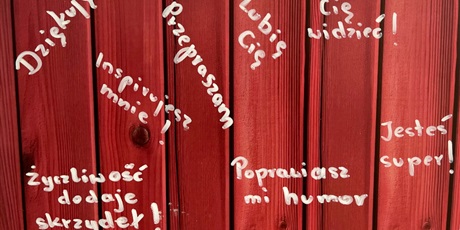 Dziękuję
Przepraszam
Lubię
Cię
Cię
widzieć!
Inspirujesz
mnie!
Jesteś
super!
Życzliwość
dodaje
skrzydeł!
Poprawiasz
mi humor